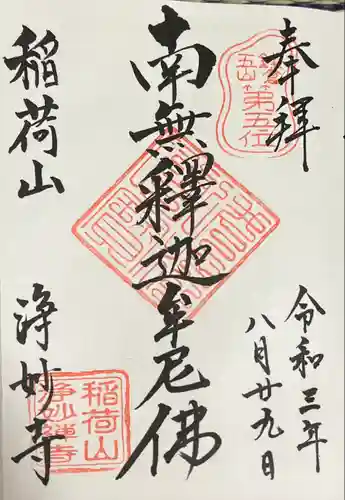 奉拝
令和三年
八月廿九日
南無釋迦牟尼佛
稲荷山
浄妙寺
第五位
稲荷山
浄妙禅寺